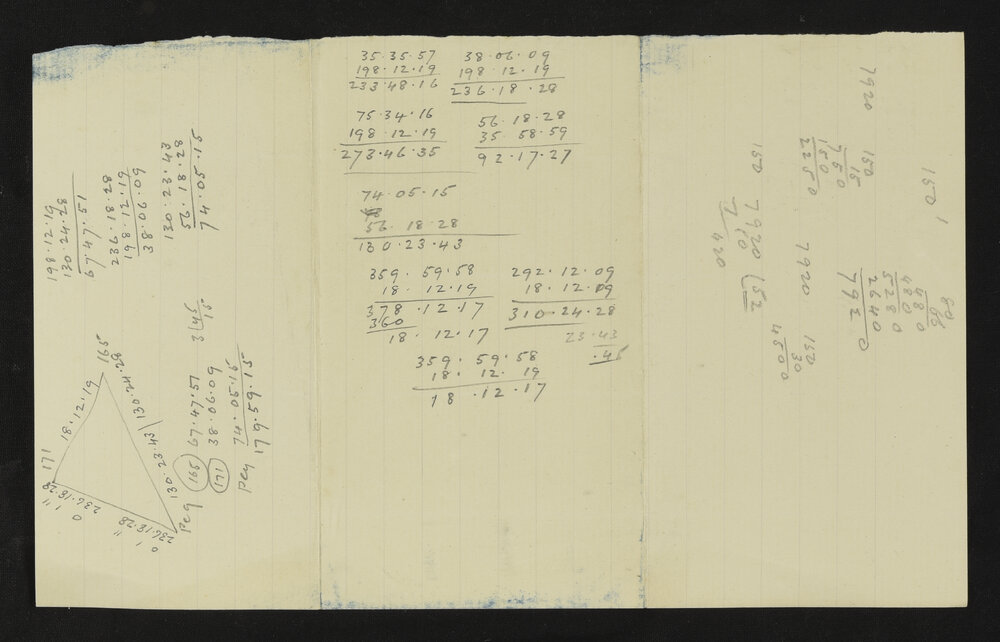 198.12.19
130.24.28
67.47.51
236.18.28
198.12.19
38.06.09
130.23.43
56.18.28
74.05.15
165
130.24.28
18.12.19
171
236.18.28
0 1 "
236.18.28
0 1 "
130.23.43
Peg
3|45
15
165 67.47.51
171 38.06.09
Peg 74.05.15
179.59.15
35.35.57
198.12.19
233.48.16
38.06.09
198.12.19
236.18.28
75.34.16
198.12.19
273.46.35
56.18.28
35.58.59
92.17.27
74.05.15
56.18.28
130.23.43
359.59.58
18.12.19
378.12.17
360
18.12.17
292.12.09
18.12.19
310.24.28
23.43
.45
359.59.58
18.12.19
18.12.17
150 1
7920
150
15
750
150
2250
480
480
5280
2640
7920
7920
150
30
4500
150
7920 (52
420